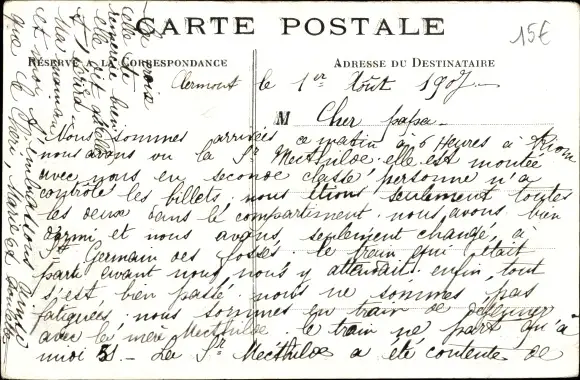 CARTE POSTALE
15€
RÉSERVÉ A LA CORRESPONDANCE
ADRESSE DU DESTINATAIRE
Clermont le 1er Août 1907
M Cher papa
Nous sommes arrivées ce matin à 6 Heures à Riom
nous avons vu la Sr Mecthilde elle est montée
avec nous en seconde classe personne n'a
contrôlé les billets nous étions seulement toutes
les deux dans le compartiment. nous avons bien
dormi et nous avons seulement changé à
St Germain des fossés. le train qui était
parti avant nous nous y attendait. enfin tout
s'est bien passé nous ne sommes pas
fatiguées nous sommes en train de déjeuner
avec les mère Mecthilde. le train ne part qu'à
midi 51. - La Sr Mecthilde a été contente de
remercie bien
elle est
maman
et moi t'embrassons
que le Marie et